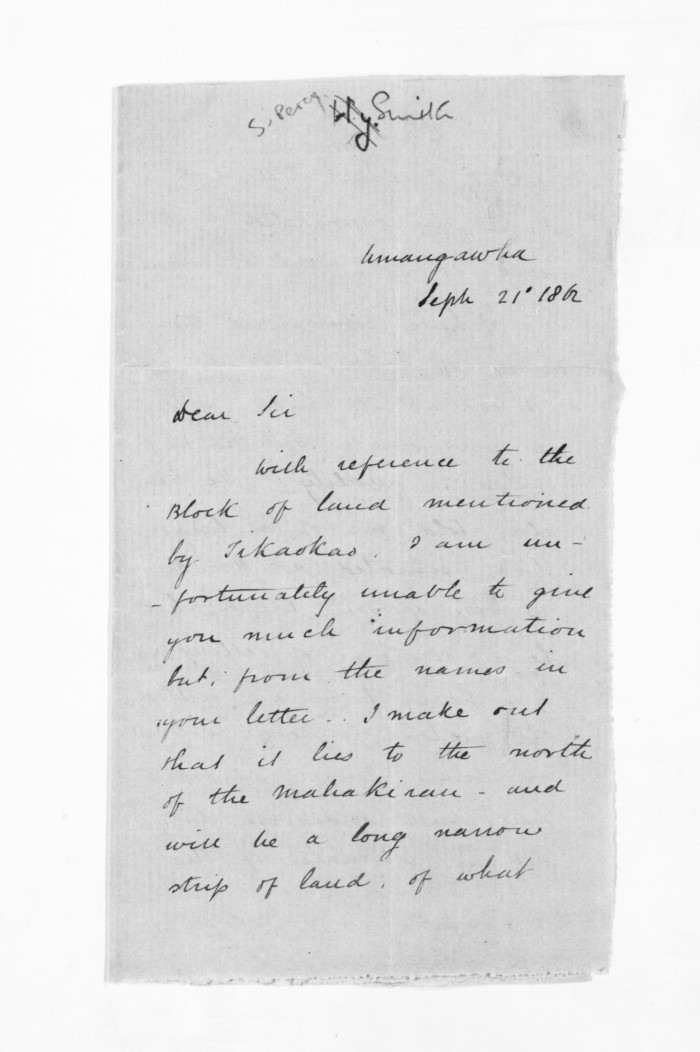 S. Percy Hy. Smith
Umangawha
Sept 21st 1862
Dear Sir
With reference to the
Block of land mentioned
by Tikaokao. I am un-
-fortunately unable to give
you much information
but, from the names in
your letter.. I make out
that it lies to the north
of the Mahakirau - and
will be a long narrow
strip of land, of what